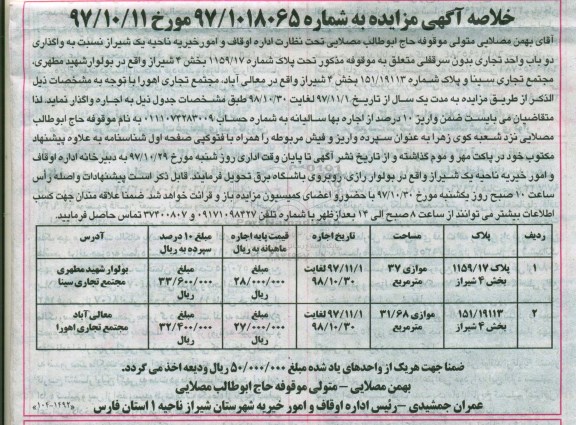 خلاصه آگهی مزایده به شماره ۹۷/۱۰۱۸۰۶۵ مورخ ۹۷/۱۰/۱۱
آقای بهمن مصلایی متولی موقوفه حاج ابوطالب مصلایی تحت نظارت اداره اوقاف و امورخیریه ناحیه یک شیراز نسبت به واگذاری
دو باب واحد تجاری بدون سرقفلی متعلق به موقوفه مذکور تحت پلاک شماره ۱۱۵۹/۱۷ بخش ۴ شیراز واقع در بولوار شهید مطهری،
مجتمع تجاری سینا و پلاک شماره ۱۵۱/۱۹۱۱۳ بخش ۴ شیراز واقع در معالی آباد، مجتمع تجاری اهورا با توجه به مشخصات ذیل
الذکر از طریق مزایده به مدت یک سال از تاریخ ۹۷/۱۱/۱ لغایت ۹۸/۱۰/۳۰ طبق مشخصات جدول ذیل به اجاره واگذار نماید. لذا
متقاضیان می بایست ضمن واریز ۱۰ درصد از اجاره بها سالیانه به شماره حساب ۰۱۱۱۰۷۳۲۸۳۰۰۹ به نام موقوفه حاج ابوطالب
مصلایی نزد شعبه کوی زهرا به عنوان سپرده واریز و فیش مربوطه را همراه با فتوکپی صفحه اول شناسنامه به علاوه پیشنهاد
مکتوب خود در پاکت مهر و موم گذاشته و از تاریخ نشر آگهی تا پایان وقت اداری روز شنبه مورخ ۹۷/۱۰/۲۹ به دبیرخانه اداره اوقاف
و امور خیریه ناحیه یک شیراز واقع در بولوار رازی، روبروی باشگاه برق تحویل نمایند. قابل ذکر است پیشنهادات واصله رأس
ساعت ۱۰ صبح روز یکشنبه مورخ ۹۷/۱۰/۳۰ با حضور و اعضای کمیسیون مزایده باز و قرائت خواهد شد. ضمنا علاقه مندان جهت کسب
اطلاعات بیشتر می توانند از ساعت ۸ صبح الی ۱۴ بعدازظهر با شماره تلفن ۰۹۱۷۱۰۹۸۳۲۷ و ۳۷۳۰۰۸۰۷ تماس حاصل فرمایند.
ردیف پلاک مساحت تاریخ اجاره قیمت پایه اجاره ماهیانه به ریال مبلغ ۱۰ درصد سپرده به ریال آدرس
۱ پلاک ۱۱۵۹/۱۷ بخش ۴ شیراز موازی ۳۷ مترمربع ۹۷/۱۱/۱ لغایت ۹۸/۱۰/۳۰ مبلغ ۲۸/۰۰۰/۰۰۰ ریال مبلغ ۳۳/۶۰۰/۰۰۰ ریال بولوار شهید مطهری مجتمع تجاری سینا
۲ ۱۵۱/۱۹۱۱۳ بخش ۴ شیراز موازی ۳۱/۶۸ مترمربع ۹۷/۱۱/۱ لغایت ۹۸/۱۰/۳۰ مبلغ ۲۷/۰۰۰/۰۰۰ ریال مبلغ ۳۲/۴۰۰/۰۰۰ ریال معالی آباد مجتمع تجاری اهورا
ضمنا جهت هر یک از واحدهای یاد شده مبلغ ۵۰/۰۰۰/۰۰۰ ریال ودیعه اخذ می گردد.
بهمن مصلایی – متولی موقوفه حاج ابوطالب مصلایی
عمران جمشیدی – رئیس اداره اوقاف و امور خیریه شهرستان شیراز ناحیه ۱ استان فارس
«۱۰۲-۱۴۹۲»